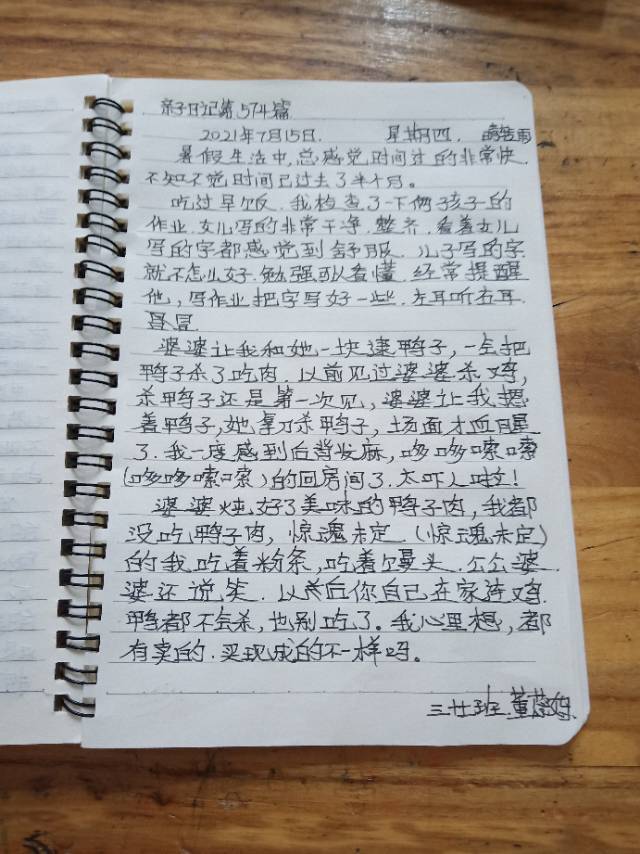 亲子日记第574篇
2021年7月15日. 星期四. 雨
暑假生活中,总感觉时间过的非常快.
不知不觉时间已过去了半个月。
吃过早饭.我检查了一下俩孩子的
作业.女儿写的非常干净.整齐.看着女儿
写的字都感觉到舒服.儿子写的字
就不怎么好.勉强可以看懂.经常提醒
他,写作业把字写好一些.左耳听右耳
冒.
婆婆让我和她一块逮鸭子,一会把
鸭子杀了吃肉.以前见过婆婆杀鸡,
杀鸭子还是第一次见,婆婆让我摁
着鸭子,她拿刀杀鸭子,场面才血腥
了.我一度感到后背发麻,哆哆嗦嗦
(哆哆嗦嗦)的回房间了.太吓人啦!
婆婆炖好了美味的鸭子肉,我都
没吃鸭子肉,惊魂未定(惊魂未定)
的我吃着粉条,吃着馒头.公公婆
婆还说笑.以后你自己在家连鸡.
鸭都不会杀,也别吃了。我心里想,都
有卖的.买现成的不一样吗。
三廿班.董